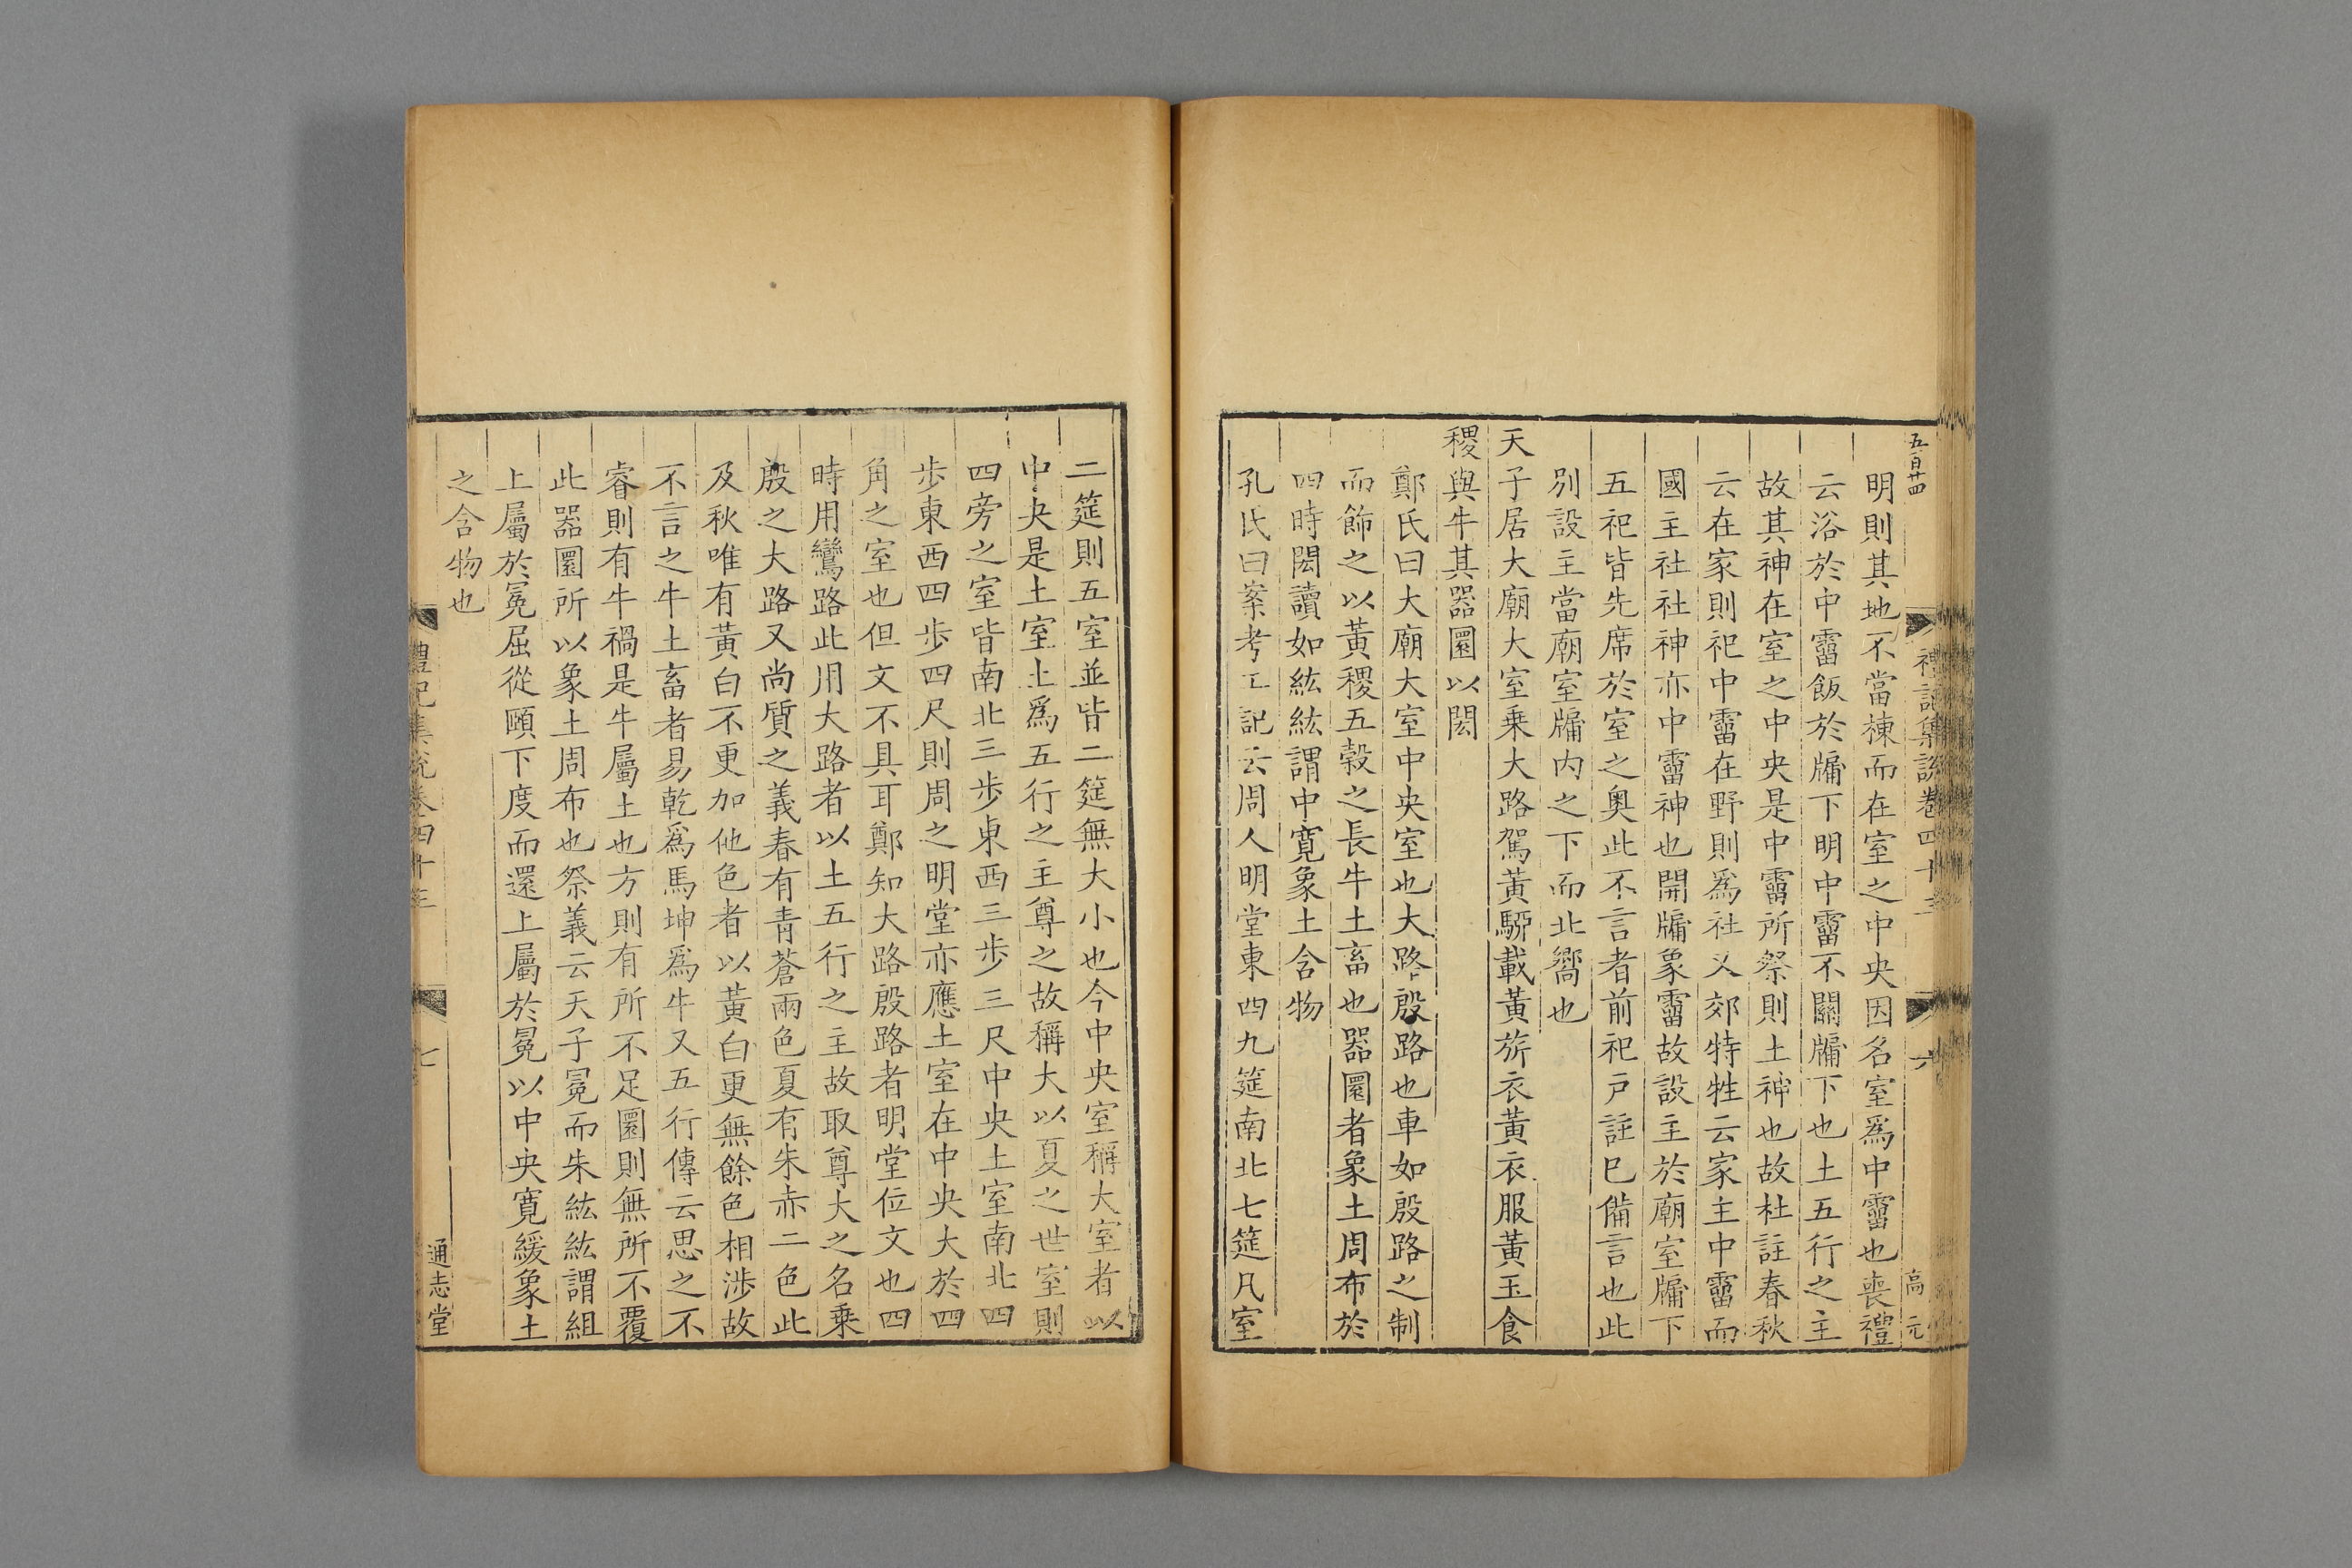 五百廿四
禮記集說卷四十三
六
高元
明則其地不當棟而在室之中央因名室爲中霤也喪禮
云浴於中霤飯於牖下明中霤不關牖下也土五行之主
故其神在室之中央是中霤所祭則土神也故杜註春秋
云在家則祀中霤在野則爲社又郊特牲云家主中霤而
國主社社神亦中霤神也開牖象霤故設主於廟室牖下
五祀皆先席於室之奧此不言者前祀戸註巳備言也此
別設主當廟室牖内之下而北嚮也
天子居大廟大室乗大路駕黃駵載黃旂衣黃衣服黃玉食
稷與牛其器圜以閎
鄭氏曰大廟大室中央室也大路殷路也車如殷路之制
而飾之以黃稷五穀之長牛土畜也器圜者象土周布於
四時閎讀如紘紘謂中寛象土含物
孔氏曰案考工記云周人明堂東西九筵南北七筵凡室
二筵則五室並皆二筵無大小也今中央室稱大室者以
中央是土室土爲五行之主尊之故稱大以夏之世室則
四旁之室皆南北三步東西三步三尺中央土室南北四
步東西四步四尺則周之明堂亦應土室在中央大於四
角之室也但文不具耳鄭知大路殷路者明堂位文也四
時用鸞路此用大路者以土五行之主故取尊大之名乗
殷之大路又尚質之義春有青蒼兩色夏有朱赤二色此
及秋唯有黃白不更加他色者以黃白更無餘色相渉故
不言之牛土畜者易乾爲馬坤爲牛又五行傳云思之不
睿則有牛禍是牛屬土也方則有所不足圜則無所不覆
此器圜所以象土周布也祭義云天子冕而朱紘紘謂組
上屬於冕屈從頤下度而還上屬於冕以中央寛緩象土
之含物也
禮記集說卷四十三
七
通志堂